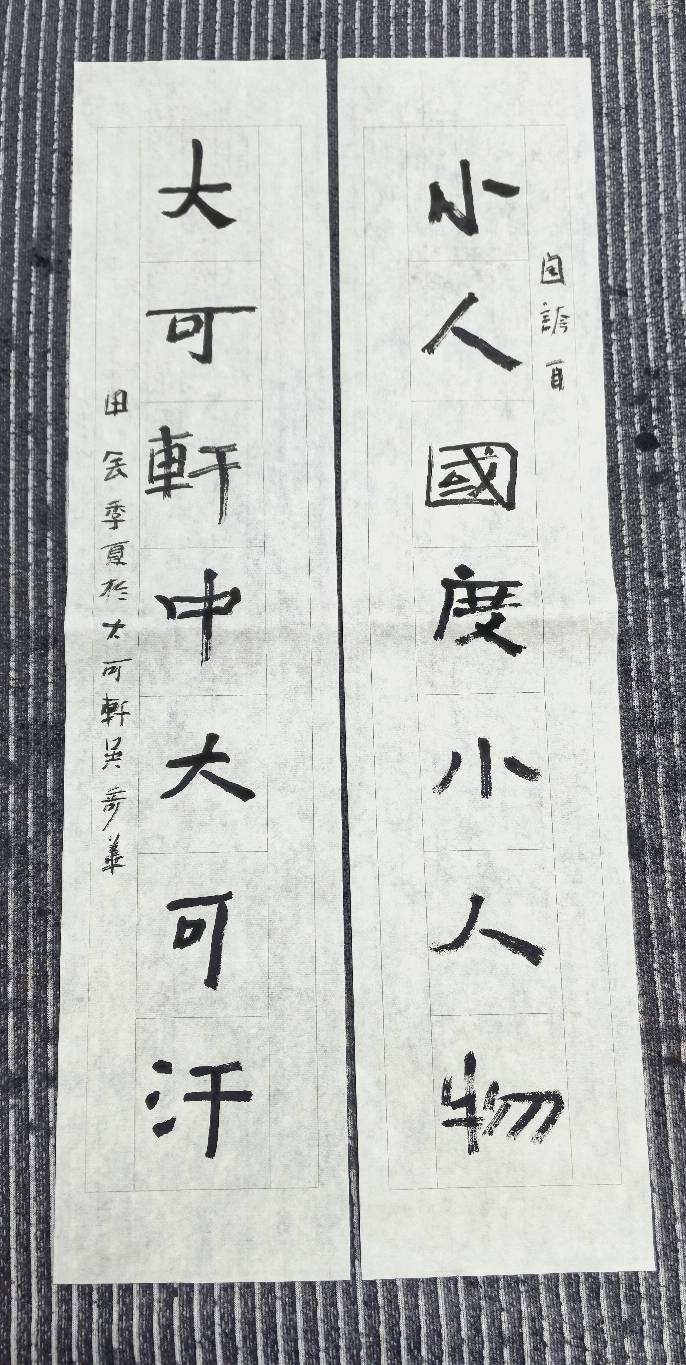 自誇自
小人國度小人物
大可軒中大可汗
甲辰季夏於大可軒吳奇華